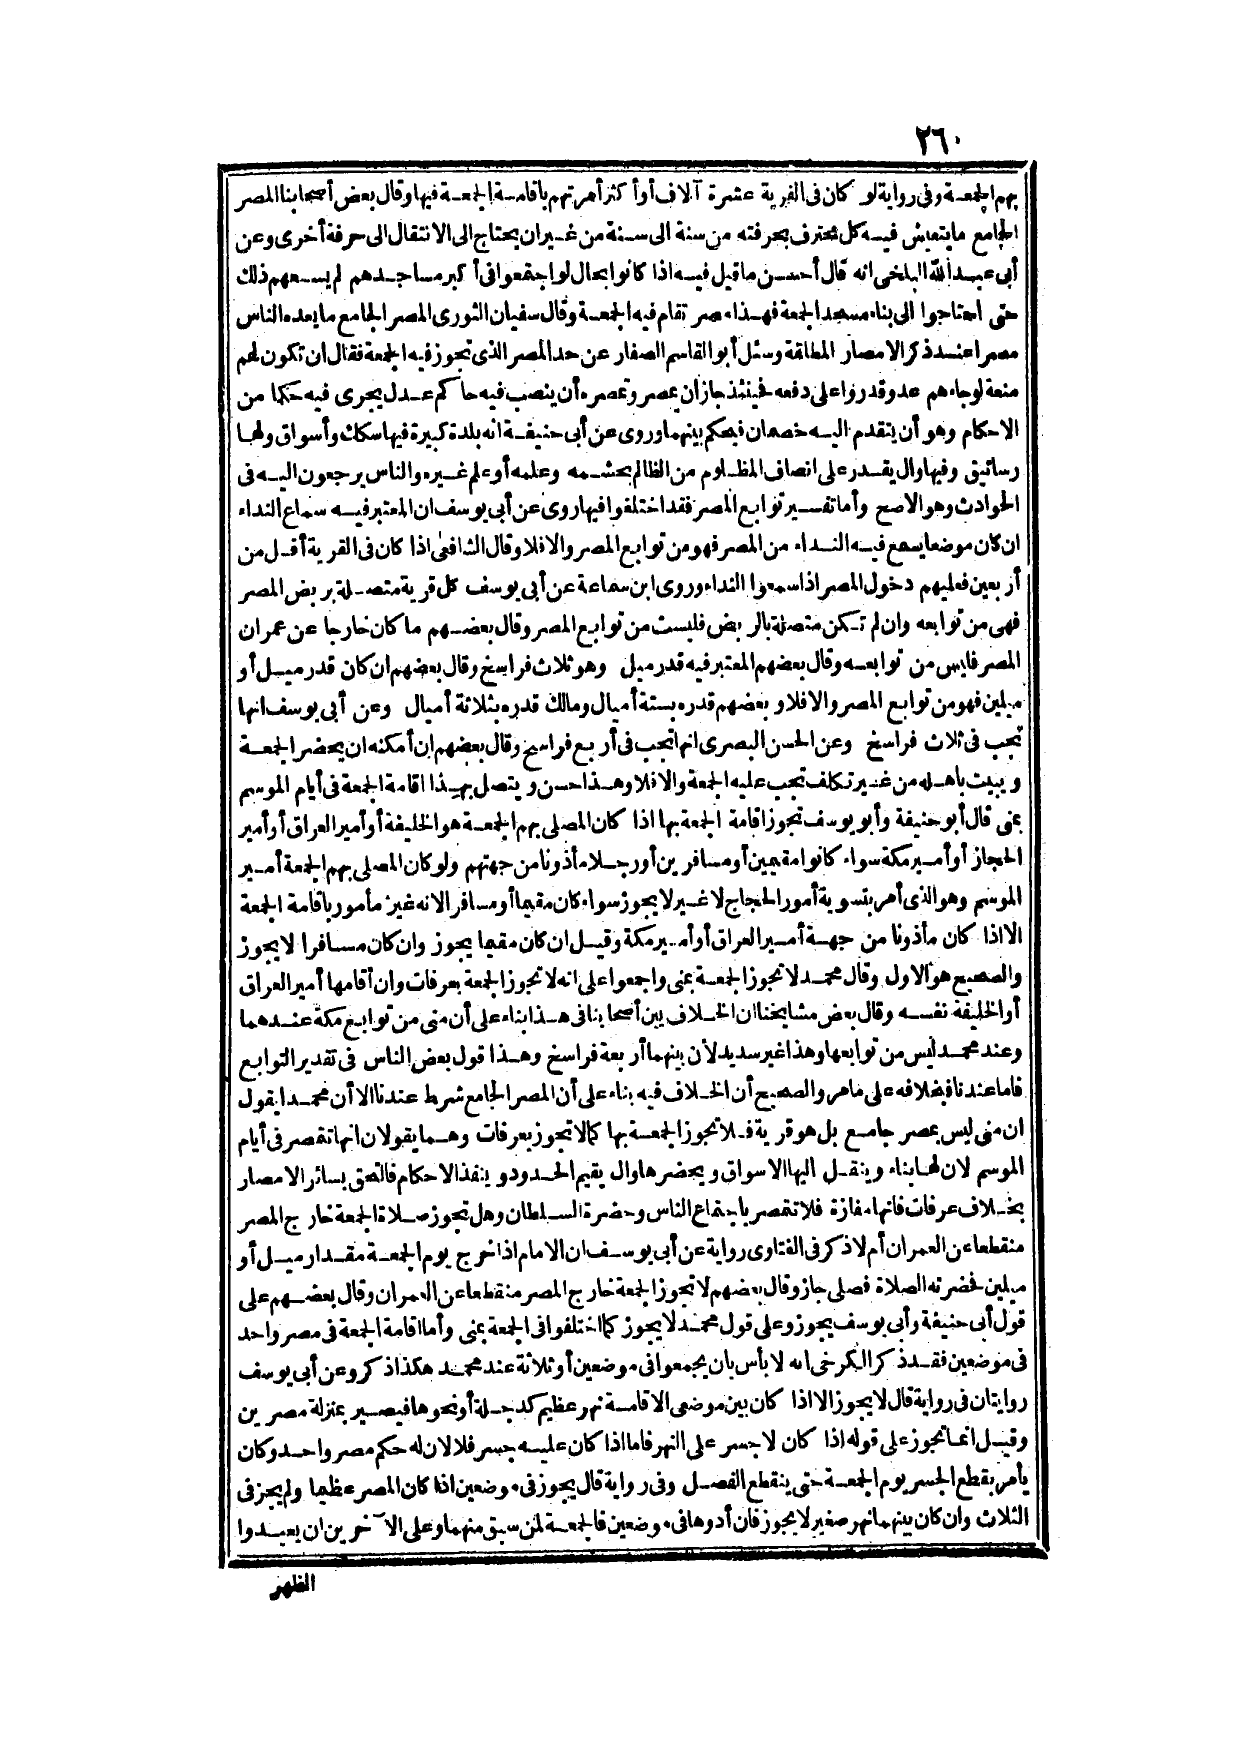 ٢٦٠
بهم الجمعة وفى رواية لو كان فى القرية عشرة آلاف أو أكثر أمرتهم باقامة الجمعة فيها وقال بعض أصحابنا المصر
الجامع ما يتعايش فيه كل محترف بحرفته من سنة الى سنة من غير ان يحتاج الى الانتقال الى حرفة أخرى وعن
أبى عبد الله البلخى انه قال أحسن ما قيل فيه اذا كانوا بحال لو اجتمعوا فى أكبر مساجدهم لم يسعهم ذلك
حتى احتاجوا الى بناء مسجد الجمعة فهذا مصر تقام فيه الجمعة وقال سفيان الثورى المصر الجامع ما يعده الناس
مصرا عند ذكر الامصار المطلقة وسئل أبو القاسم الصفار عن حد المصر الذى تجوز فيه الجمعة فقال ان تكون لهم
منعة لو جاءهم عدو قدروا على دفعه فحينئذ جاز ان يمصر وتمصره أن ينصب فيه حاكم عدل يجرى فيه حكما من
الاحكام وهو أن يتقدم اليه خصمان فيحكم بينهما وروى عن أبى حنيفة انه بلدة كبيرة فيها سكك وأسواق ولها
رساتيق وفيها وال يقدر على انصاف المظلوم من الظالم بحشمه وعلمه أو علم غيره والناس يرجعون اليه فى
الحوادث وهو الاصح وأما تفسير توابع المصر فقد اختلفوا فيها روى عن أبى يوسف ان المعتبر فيه سماع النداء
ان كان موضعا يسمع فيه النداء من المصر فهو من توابع المصر والا فلا وقال الشافعى اذا كان فى القرية أقل من
أربعين فعليهم دخول المصر اذا سمعوا النداء وروى ابن سماعة عن أبى يوسف كل قرية متصلة بربض المصر
فهى من توابعه وان لم تكن متصلة بالربض فليست من توابع المصر وقال بعضهم ما كان خارجا عن عمران
المصر فليس من توابعه وقال بعضهم المعتبر فيه قدر ميل وهو ثلاث فراسخ وقال بعضهم ان كان قدر ميل أو
ميلين فهو من توابع المصر والا فلا وبعضهم قدره بستة أميال ومالك قدره بثلاثة أميال وعن أبى يوسف انها
تجب فى ثلاث فراسخ وعن الحسن البصرى انها تجب فى أربع فراسخ وقال بعضهم ان أمكنه ان يحضر الجمعة
ويبيت بأهله من غير تكلف تجب عليه الجمعة والا فلا وهذا حسن ويتصل بهذا اقامة الجمعة فى أيام الموسم
بمنى قال أبو حنيفة وأبو يوسف تجوز اقامة الجمعة بها اذا كان المصلى بهم الجمعة هو الخليفة أو أمير العراق أو أمير
الحجاز أو أمير مكة سواء كانوا مقيمين أو مسافرين أو رجلا مأذونا من جهتهم ولو كان المصلى بهم الجمعة أمير
الموسم وهو الذى أمر بتسوية أمور الحجاج لا غير لا يجوز سواء كان مقيما أو مسافرا لانه غير مأمور باقامة الجمعة
الا اذا كان مأذونا من جهة أمير العراق أو أمير مكة وقيل ان كان مقيما يجوز وان كان مسافرا لا يجوز
والصحيح هو الاول وقال محمد لا تجوز الجمعة بمنى واجمعوا على انه لا تجوز الجمعة بعرفات وان أقامها أمير العراق
أو الخليفة نفسه وقال بعض مشايخنا ان الخلاف بين أصحابنا فى هذا بناء على أن منى من توابع مكة عندهما
وعند محمد ليس من توابعها وهذا غير سديد لأن بينهما أربعة فراسخ وهذا قول بعض الناس فى تقدير التوابع
فاما عندنا فبخلافه على ما مر والصحيح أن الخلاف فيه بناء على أن المصر الجامع شرط عندنا الا أن محمدا يقول
ان منى ليس بمصر جامع بل هو قرية فلا تجوز الجمعة بها كما لا تجوز بعرفات وهما يقولان انها تتمصر فى أيام
الموسم لان لها بناء وينقل اليها الاسواق ويحضرها وال يقيم الحدود وينفذ الاحكام فالتحق بسائر الامصار
بخلاف عرفات فانها مفازة فلا تتمصر باجتماع الناس وحضرة السلطان وهل تجوز صلاة الجمعة خارج المصر
منقطعا عن العمران أم لا ذكر فى الفتاوى رواية عن أبى يوسف ان الامام اذا خرج يوم الجمعة مقدار ميل أو
ميلين فحضرته الصلاة فصلى جاز وقال بعضهم لا تجوز الجمعة خارج المصر منقطعا عن العمران وقال بعضهم على
قول أبى حنيفة وأبى يوسف يجوز وعلى قول محمد لا يجوز كما اختلفوا فى الجمعة بمنى وأما اقامة الجمعة فى مصر واحد
فى موضعين فقد ذكر الكرخى انه لا بأس بان يجمعوا فى موضعين أو ثلاثة عند محمد هكذا ذكر وعن أبى يوسف
روايتان فى رواية قال لا يجوز الا اذا كان بين موضعى الاقامة نهر عظيم كدجلة أو نحوها فيصير بمنزلة مصرين
وقيل انما تجوز على قوله اذا كان لا جسر على النهر فاما اذا كان عليه جسر فلا لان له حكم مصر واحد وكان
يأمر بقطع الجسر يوم الجمعة حتى ينقطع الفصل وفى رواية قال يجوز فى موضعين اذا كان المصر عظيما ولم يجز فى
الثلاث وان كان بينهما نهر صغير لا يجوز فان أدوها فى موضعين فالجمعة لمن سبق منهما وعلى الآخرين ان يعيدوا
الظهر